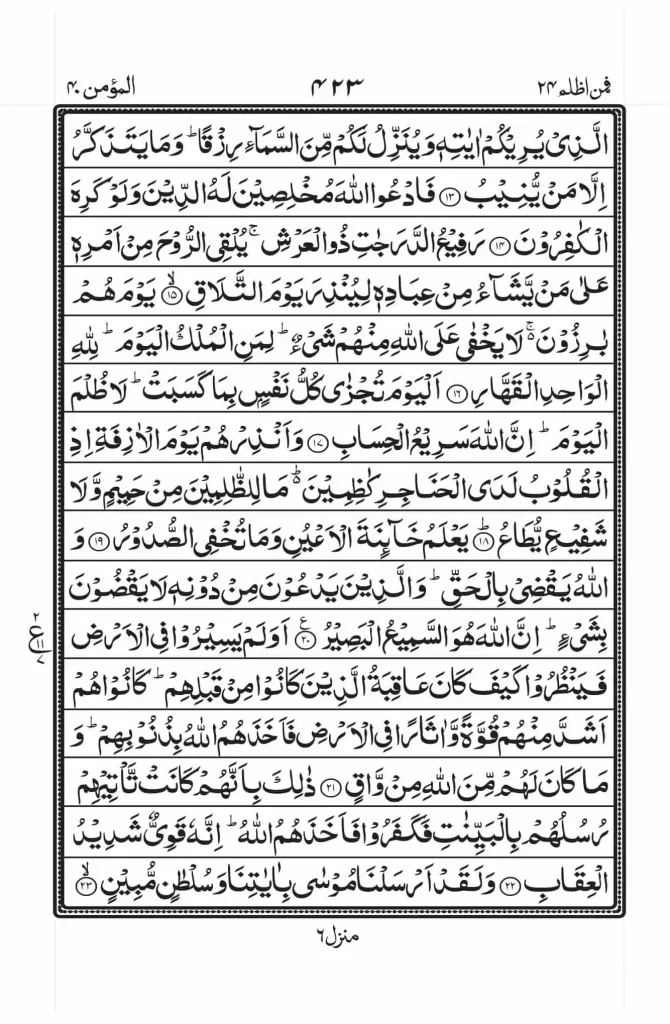 فمن اظلم ۲۴ ۴۲۳ المؤمن ۴۰
الَّذِیْ یُرِیْكُمْ اٰیٰتِهٖ وَ یُنَزِّلُ لَكُمْ مِّنَ السَّمَآءِ رِزْقًا ؕ وَ مَا یَتَذَكَّرُ
اِلَّا مَنْ یُّنِیْبُ ﴿۱۳﴾ فَادْعُوا اللّٰهَ مُخْلِصِیْنَ لَهُ الدِّیْنَ وَ لَوْ كَرِهَ
الْكٰفِرُوْنَ ﴿۱۴﴾ رَفِیْعُ الدَّرَجٰتِ ذُو الْعَرْشِ ۚ یُلْقِی الرُّوْحَ مِنْ اَمْرِهٖ
عَلٰی مَنْ یَّشَآءُ مِنْ عِبَادِهٖ لِیُنْذِرَ یَوْمَ التَّلَاقِ ﴿ۙ۱۵﴾ یَوْمَ هُمْ
بٰرِزُوْنَ ۚ۬ لَا یَخْفٰی عَلَی اللّٰهِ مِنْهُمْ شَیْءٌ ؕ لِمَنِ الْمُلْكُ الْیَوْمَ ؕ لِلّٰهِ
الْوَاحِدِ الْقَهَّارِ ﴿۱۶﴾ اَلْیَوْمَ تُجْزٰی كُلُّ نَفْسٍۭ بِمَا كَسَبَتْ ؕ لَا ظُلْمَ
الْیَوْمَ ؕ اِنَّ اللّٰهَ سَرِیْعُ الْحِسَابِ ﴿۱۷﴾ وَ اَنْذِرْهُمْ یَوْمَ الْاٰزِفَةِ اِذِ
الْقُلُوْبُ لَدَی الْحَنَاجِرِ كٰظِمِیْنَ ؕ۬ مَا لِلظّٰلِمِیْنَ مِنْ حَمِیْمٍ وَّ لَا
شَفِیْعٍ یُّطَاعُ ﴿ؕ۱۸﴾ یَعْلَمُ خَآىِٕنَةَ الْاَعْیُنِ وَ مَا تُخْفِی الصُّدُوْرُ ﴿۱۹﴾ وَ
اللّٰهُ یَقْضِیْ بِالْحَقِّ ؕ وَ الَّذِیْنَ یَدْعُوْنَ مِنْ دُوْنِهٖ لَا یَقْضُوْنَ
بِشَیْءٍ ؕ اِنَّ اللّٰهَ هُوَ السَّمِیْعُ الْبَصِیْرُ ﴿۲۰﴾ؑ اَوَ لَمْ یَسِیْرُوْا فِی الْاَرْضِ
۲ ع ۱۱ ۷
فَیَنْظُرُوْا كَیْفَ كَانَ عَاقِبَةُ الَّذِیْنَ كَانُوْا مِنْ قَبْلِهِمْ ؕ كَانُوْا هُمْ
اَشَدَّ مِنْهُمْ قُوَّةً وَّ اٰثَارًا فِی الْاَرْضِ فَاَخَذَهُمُ اللّٰهُ بِذُنُوْبِهِمْ ؕ وَ
مَا كَانَ لَهُمْ مِّنَ اللّٰهِ مِنْ وَّاقٍ ﴿۲۱﴾ ذٰلِكَ بِاَنَّهُمْ كَانَتْ تَّاْتِیْهِمْ
رُسُلُهُمْ بِالْبَیِّنٰتِ فَكَفَرُوْا فَاَخَذَهُمُ اللّٰهُ ؕ اِنَّهٗ قَوِیٌّ شَدِیْدُ
الْعِقَابِ ﴿۲۲﴾ وَ لَقَدْ اَرْسَلْنَا مُوْسٰی بِاٰیٰتِنَا وَ سُلْطٰنٍ مُّبِیْنٍ ﴿ۙ۲۳﴾
منزل ۶